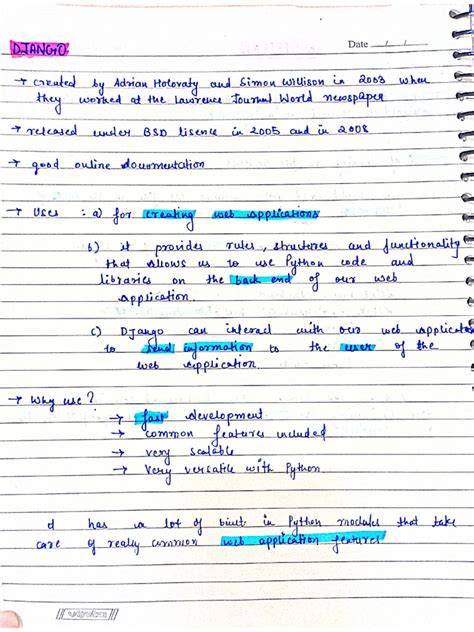 DJANGO
Date / /
→ created by Adrian Holovaty and Simon Willison in 2003 when
they worked at the Lawrence Journal World newspaper
→ released under BSD lisence in 2005 and in 2008
→ good online documentation
→ Uses : a) for creating web applications
b) it provides rules, structures and functionality
that allows us to use Python code and
libraries on the back end of our web
application.
c) Django can interact with our web applicaton
to send information to the user of the
web application.
→ Why use?
→ fast development
→ common features included
→ very scalable
→ very versatile with Python.
d has a lot of built in Python modules that take
care of really common web application features